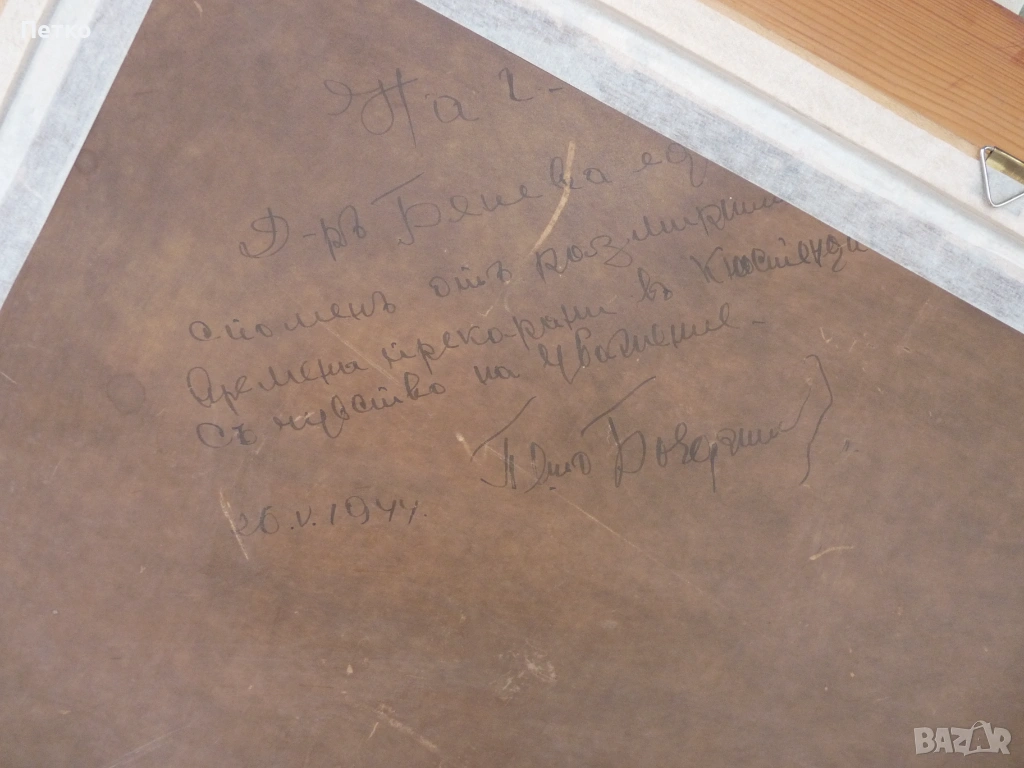 Петко
На г-
Д-ръ Бянева ед
споменъ отъ размирни
времена прекарани въ Кюстенди
съ чувство на уважение.-
Боберски
26.V.1944.
BAZAR